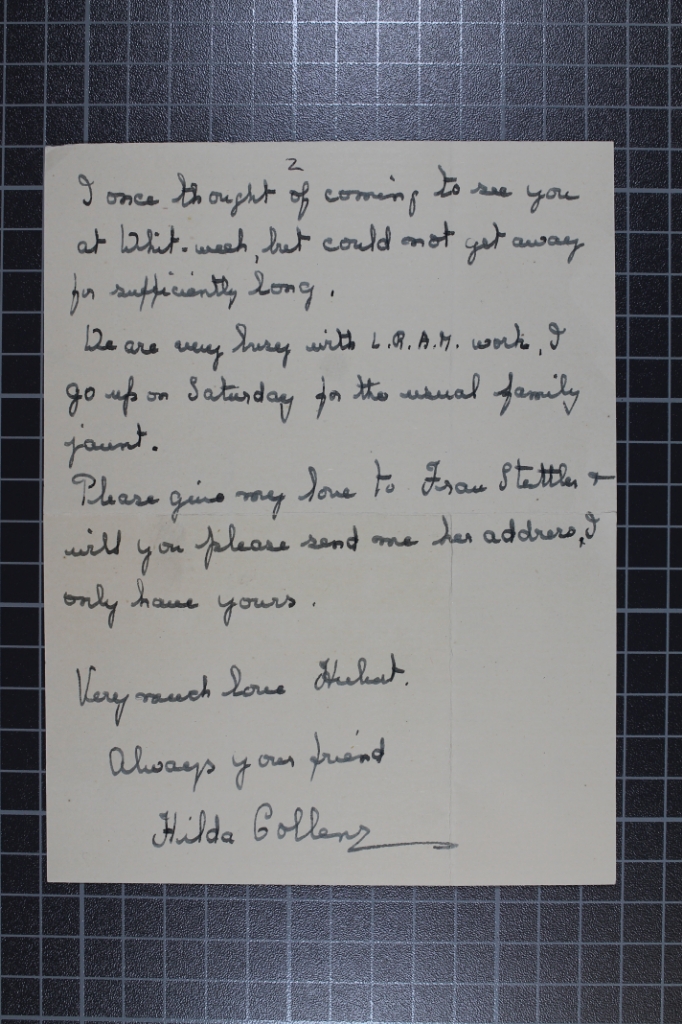 2
I once thought of coming to see you
at Whit-week, but could not get away
for sufficiently long.
We are very busy with L.R.A.M. work, I
go up on Saturday for the usual family
jaunt.
Please give my love to Frau Stettler &
will you please send me her address, I
only have yours.
Very much love Hubert.
Always your friend
Hilda Collens